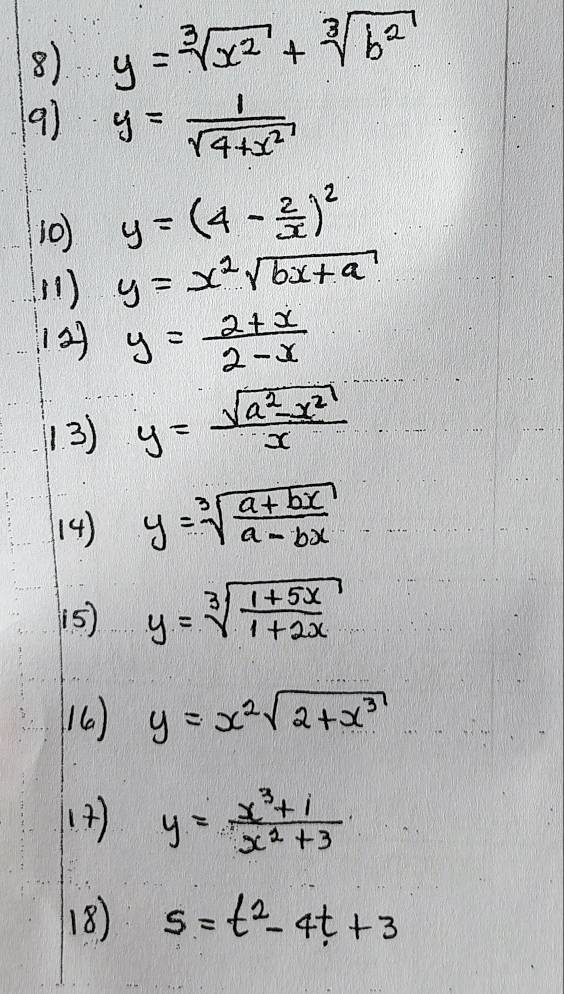 8) y = ∛x² + ∛b²
9) y = 1/√(4+x²)
10) y = (4 - 2/x)²
11) y = x²√(bx+a)
12) y = (2+x)/(2-x)
13) y = √(a²-x²)/x
14) y = ∛((a+bx)/(a-bx))
15) y = ∛((1+5x)/(1+2x))
16) y = x²√(2+x³)
17) y = (x³+1)/(x²+3)
18) s = t² - 4t + 3